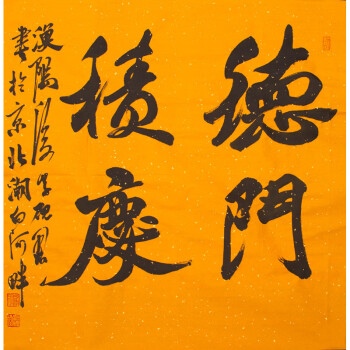 德門
積慶
書於京北潮白河畔